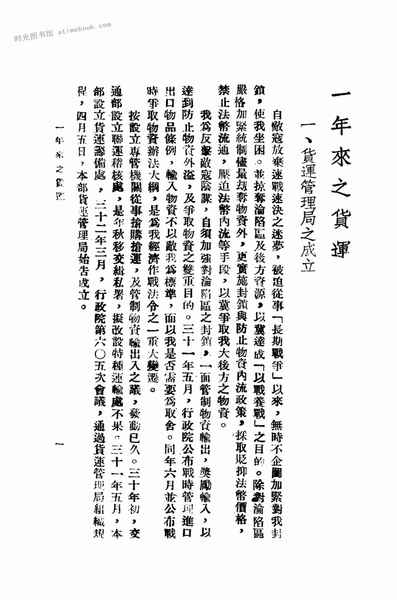 时光图书馆 atimebook.com
一年來之貨運
一、貨運管理局之成立
自敵寇放棄速戰速決之迷夢，被迫從事「長期戰爭」以來，無時不企圖加緊對我封
鎖，使我坐困。並掠奪淪陷區及後方資源，以冀達成「以戰養戰」之目的。除對淪陷區
嚴格加緊統制儘量刼奪物資外，更實施封鎖與防止物資內流政策，採取貶抑法幣價格，
禁止法幣流通，壓迫法幣內流等手段，以冀爭取我大後方之物資。
我為反擊敵寇陰謀，自須加強對淪陷區之封鎖，一面管制物資輸出，獎勵輸入，以
達到防止物資外溢，及爭取物資之雙重目的。三十一年五月，行政院公布戰時管理進口
出口物品條例，輸入物資不以敵我為標準，而以我是否需要為取舍。同年六月並公布戰
時爭取物資辦法大綱，是為我經濟作戰法令之一重大變遷。
按設立專管機關從事搶購搶運，及管制物資輸出入之議，發動已久。三十年初，交
通部設立聯運稽核處，是年秋移交緝私署，擬改設特種運輸處不果。三十一年五月，本
部設立貨運籌備處，三十二年三月，行政院第六〇五次會議，通過貨運管理局組織規
程，四月五日，本部貨運管理局始告成立。
一年來之貨運
一